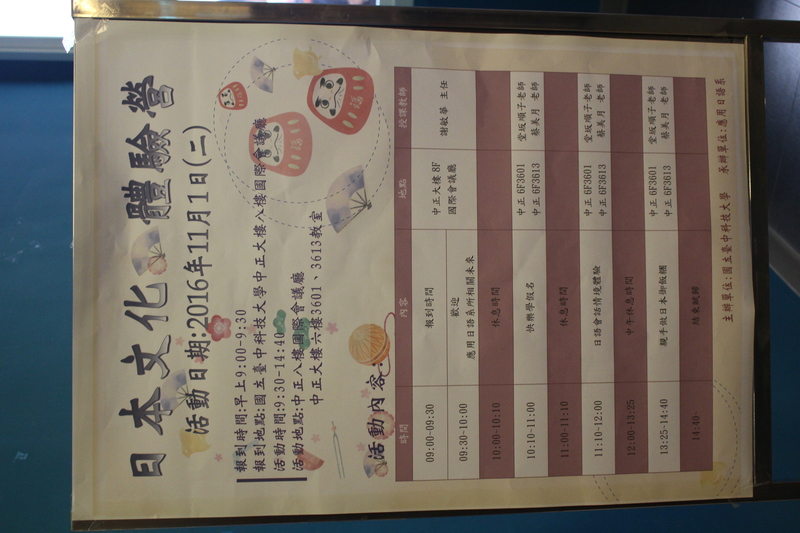 日本文化 體驗營
活動日期:2016年11月1日(二)
報到時間:早上9:00-9:30
報到地點:國立臺中科技大學中正大樓八樓國際會議廳
活動時間:9:30-14:40
活動地點:中正八樓國際會議廳
中正大樓六樓3601、3613教室
活動內容:
時間 內容 地點 授課教師
09:00-09:30 報到時間 中正大樓 8F 國際會議廳 謝敏華 主任
09:30-10:00 歡迎 應用日語系所相關未來
10:00-10:10 休息時間
10:10-11:00 快樂學假名 中正 6F3601 中正 6F3613 堂坂順子老師 蔡美月 老師
11:00-11:10 休息時間
11:10-12:00 日語會話情境體驗 中正 6F3601 中正 6F3613 堂坂順子老師 蔡美月 老師
12:00-13:25 中午休息時間
13:25-14:40 親手做日本御飯糰 中正 6F3601 中正 6F3613 堂坂順子老師 蔡美月 老師
14:40- 結束賦歸
主辦單位:國立臺中科技大學 承辦單位:應用日語系
福
福